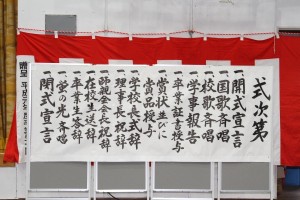 式次第
一、開式宣言
一、国歌斉唱
一、校歌斉唱
一、学事報告
一、卒業証書授与
一、賞状並びに
賞品授与
一、学校長式辞
一、理事長祝辞
一、師親会会長祝辞
一、在校生送辞
一、卒業生答辞
一、蛍の光斉唱
一、閉式宣言